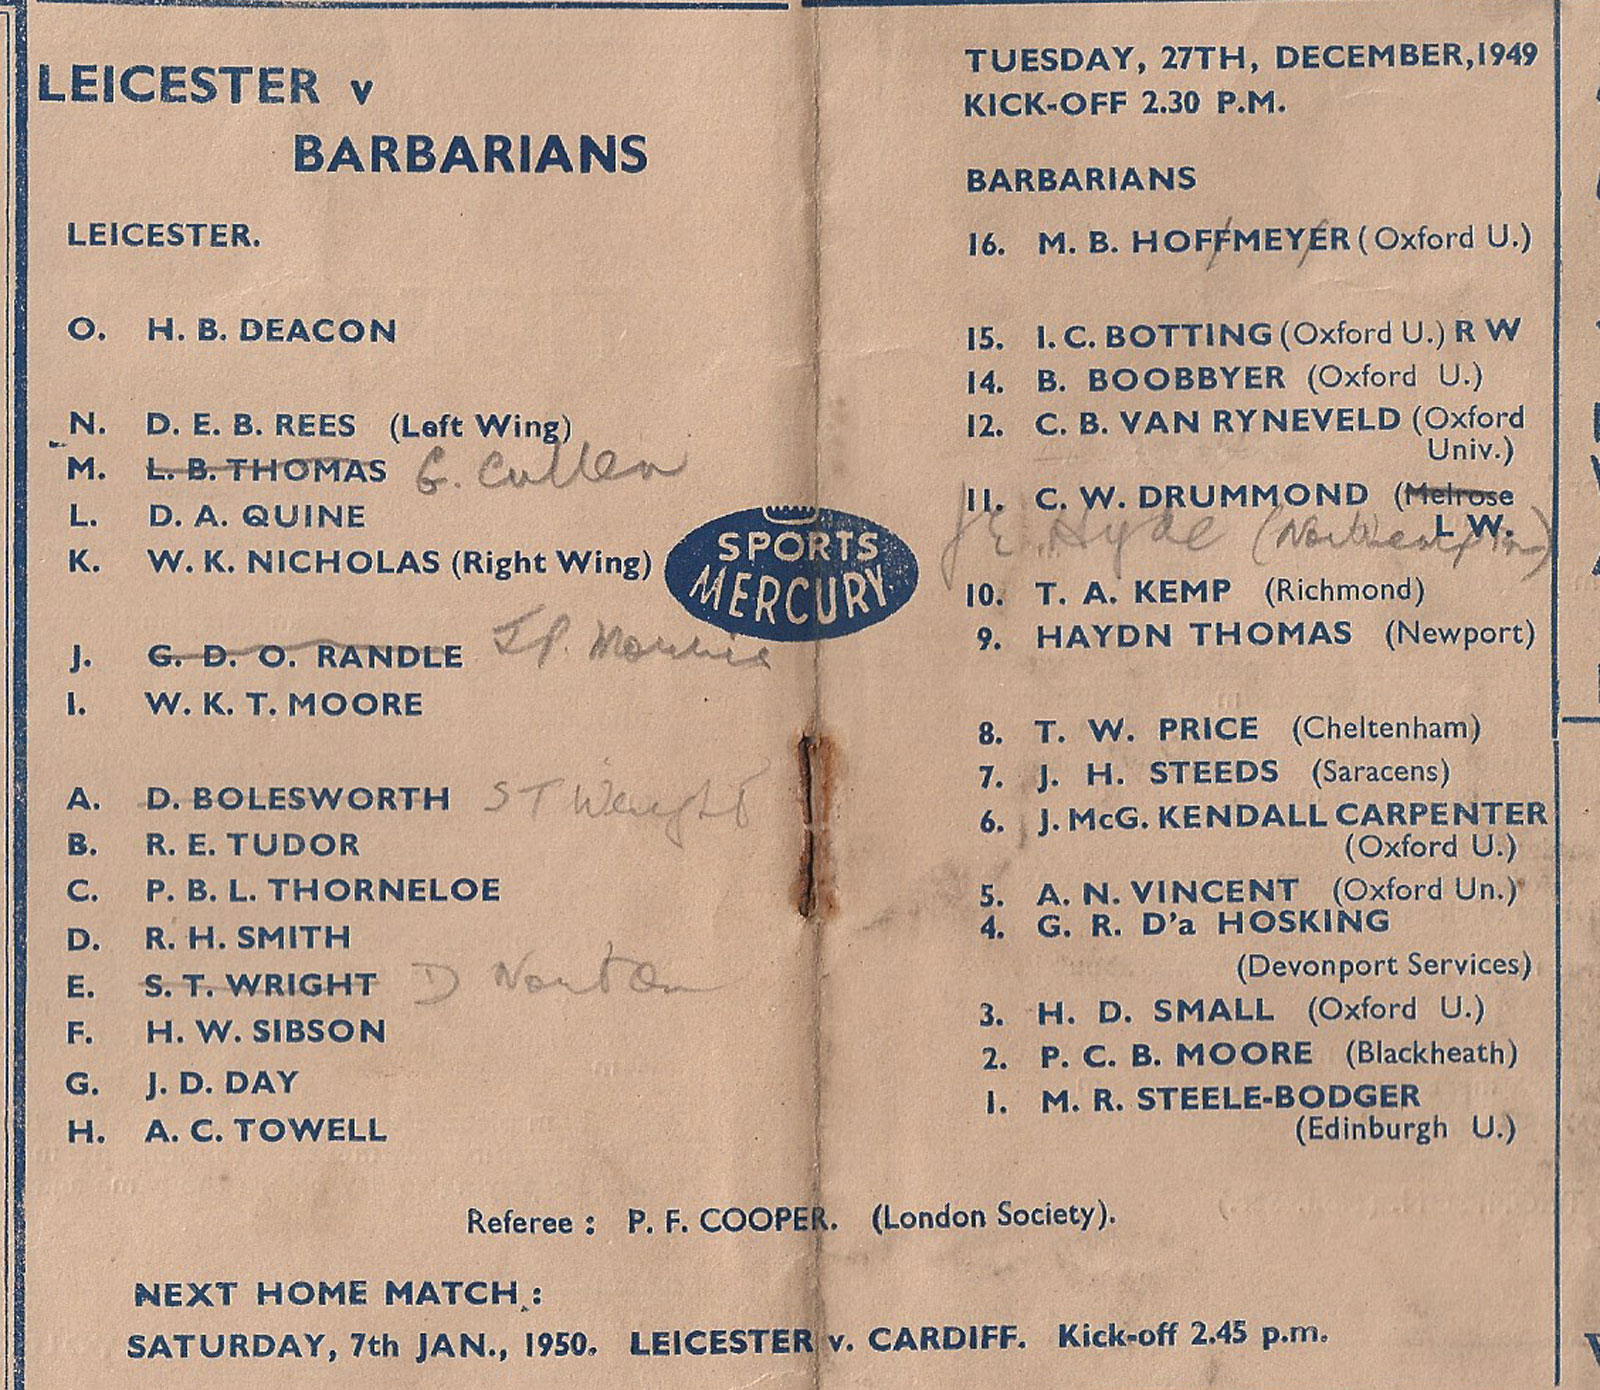 LEICESTER v
BARBARIANS
LEICESTER.
O. H. B. DEACON
N. D. E. B. REES (Left Wing)
M. L. B. THOMAS G. Cullen
L. D. A. QUINE
K. W. K. NICHOLAS (Right Wing)
J. G. D. O. RANDLE J.P.
I. W. K. T. MOORE
A. D. BOLESWORTH S T Wright
B. R. E. TUDOR
C. P. B. L. THORNELOE
D. R. H. SMITH
E. S. T. WRIGHT D Norton
F. H. W. SIBSON
G. J. D. DAY
H. A. C. TOWELL
SPORTS
MERCURY.
TUESDAY, 27TH, DECEMBER, 1949
KICK-OFF 2.30 P.M.
BARBARIANS
16. M. B. HOFFMEYER (Oxford U.)
15. I. C. BOTTING (Oxford U.) R W
14. B. BOOBBYER (Oxford U.)
12. C. B. VAN RYNEVELD (Oxford
Univ.)
11. C. W. DRUMMOND (Melrose
L W.
J E Hyde (Northampton)
10. T. A. KEMP (Richmond)
9. HAYDN THOMAS (Newport)
8. T. W. PRICE (Cheltenham)
7. J. H. STEEDS (Saracens)
6. J. McG. KENDALL CARPENTER
(Oxford U.)
5. A. N. VINCENT (Oxford Un.)
4. G. R. D'a HOSKING
(Devonport Services)
3. H. D. SMALL (Oxford U.)
2. P. C. B. MOORE (Blackheath)
1. M. R. STEELE-BODGER
(Edinburgh U.)
Referee : P. F. COOPER. (London Society).
NEXT HOME MATCH :
SATURDAY, 7th JAN., 1950. LEICESTER v. CARDIFF. Kick-off 2.45 p.m.